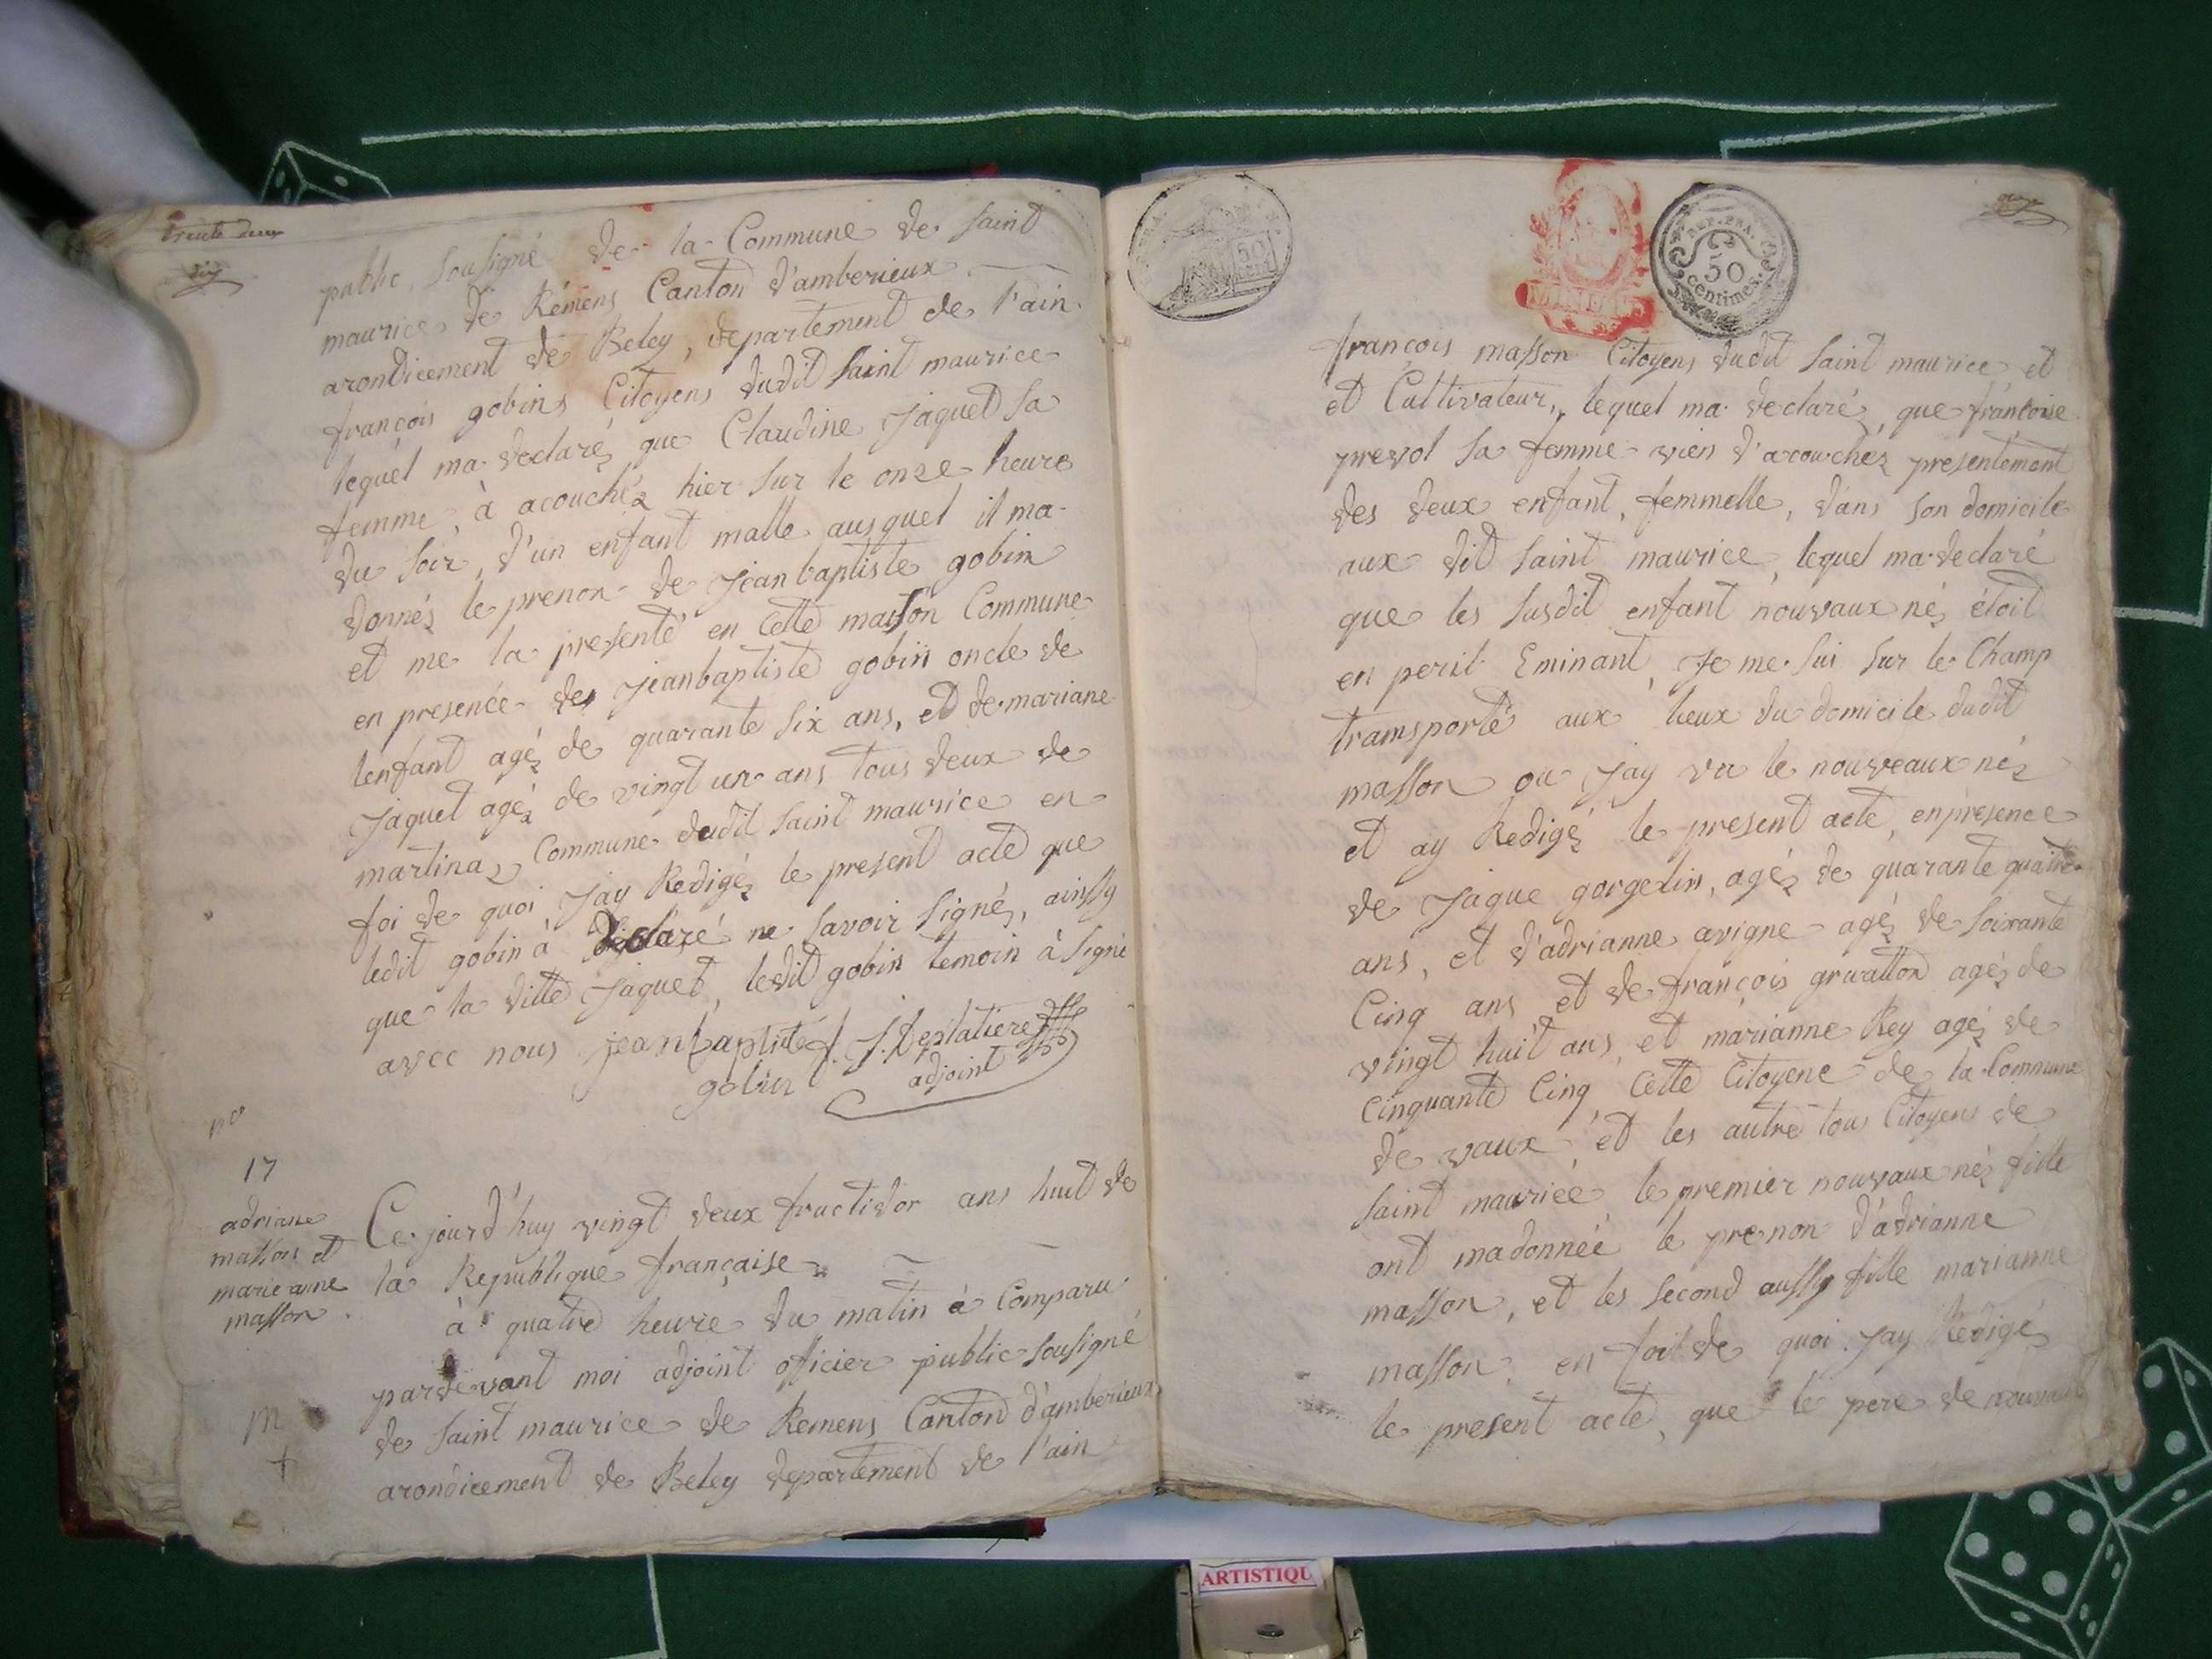 trente deux
public, sousigné de la Commune de saint
maurice de Rémens Canton d'amberieux
arondicement de Beley, departement de l'ain
françois gobins Citoyens dudit saint maurice
lequel ma declaré que Claudine Jaquet sa
femme, à acouchéz hier sur le onze heure
du soir, d'un enfant malle ausquel il ma
donnéz le prenon de jeanbaptiste gobin
et me la presenté en cette maison Commune
en presence de jeanbaptiste gobin oncle de
lenfant agéz de quarante six ans, et de mariane
Jaquet agéz de vingt un ans tous deux de
martinaz Commune dudit saint maurice en
foi de quoi, Jay Redigéz le present acte que
ledit gobin à déclaré ne savoir signé, ainssy
que la ditte Jaquet, ledit gobin temoin à signé
avec nous jeanbaptiste J. J. Deplatiere
gobin adjoint
no
17
adriane
masson et
marieanne
masson
Ce jourd'huy vingt deux fructidor ans huit de
la Republique française
à quatre heure du matin à Comparu
pardevant moi adjoint officier public sousigné
de saint maurice de Remens Canton d'amberieux
arondicement de Beley departement de l'ain
m
+
REP. FRA.
50
centimes
50
cent
françois masson Citoyens dudit saint maurice et
et Cultivateur, lequel ma declaré, que françoise
prevol sa femme vien d'acouchéz presentement
des deux enfant, femmelle, dans son domicile
aux dit saint maurice, lequel ma declaré
que les susdit enfant nouvaux néz étoit
en peril Eminant, Je me sui sur le Champ
transporté aux lieux du domicile dudit
masson ou Jay vu le nouveaux néz
et ay Redigéz le present acte, en presence
de Jaque gorgelin, agéz de quarante quatre
ans, et d'adrianne avigne agéz de soixante
Cinq ans et de françois gruatton agéz de
vingt huit ans, et marianne Rey agéz de
Cinquante Cinq, Cette Citoyene de la Commune
de vaux, et les autre tou Citoyens de
saint maurice, le premier nouvaux néz fille
ont madonnée le prenon d'adrianne
masson, et les second aussy fille marianne
masson, en foit de quoi Jay Redigéz
le present acte, que le pere de nouvaux